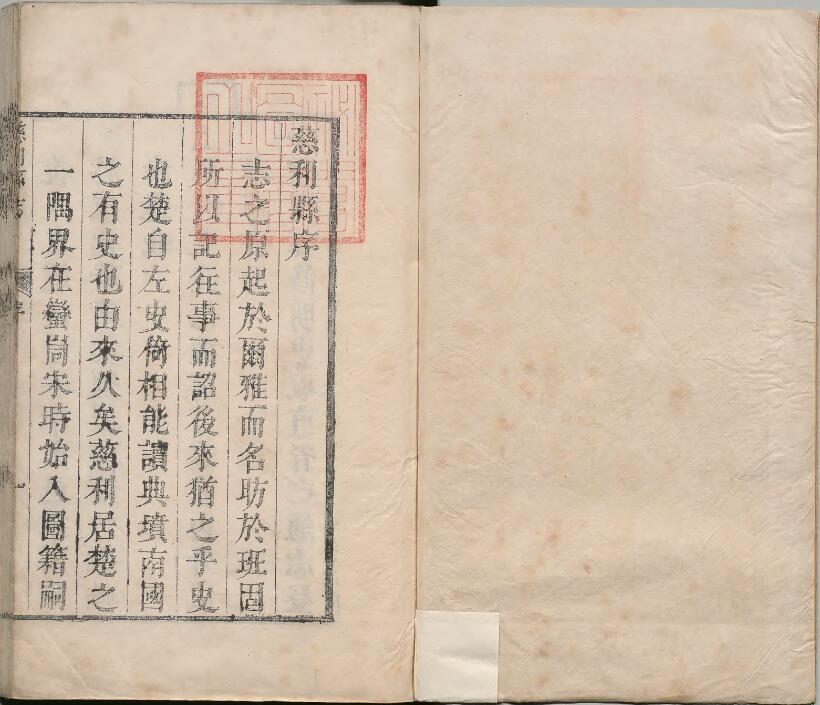 慈利縣序
志之原起於爾雅而名昉於班固
所以記徃事而詔後來猶之乎史
也楚自左史倚相能讀典墳南國
之有史也由來久矣慈利居楚之
一隅界在蠻峒宋時始入圖籍嗣